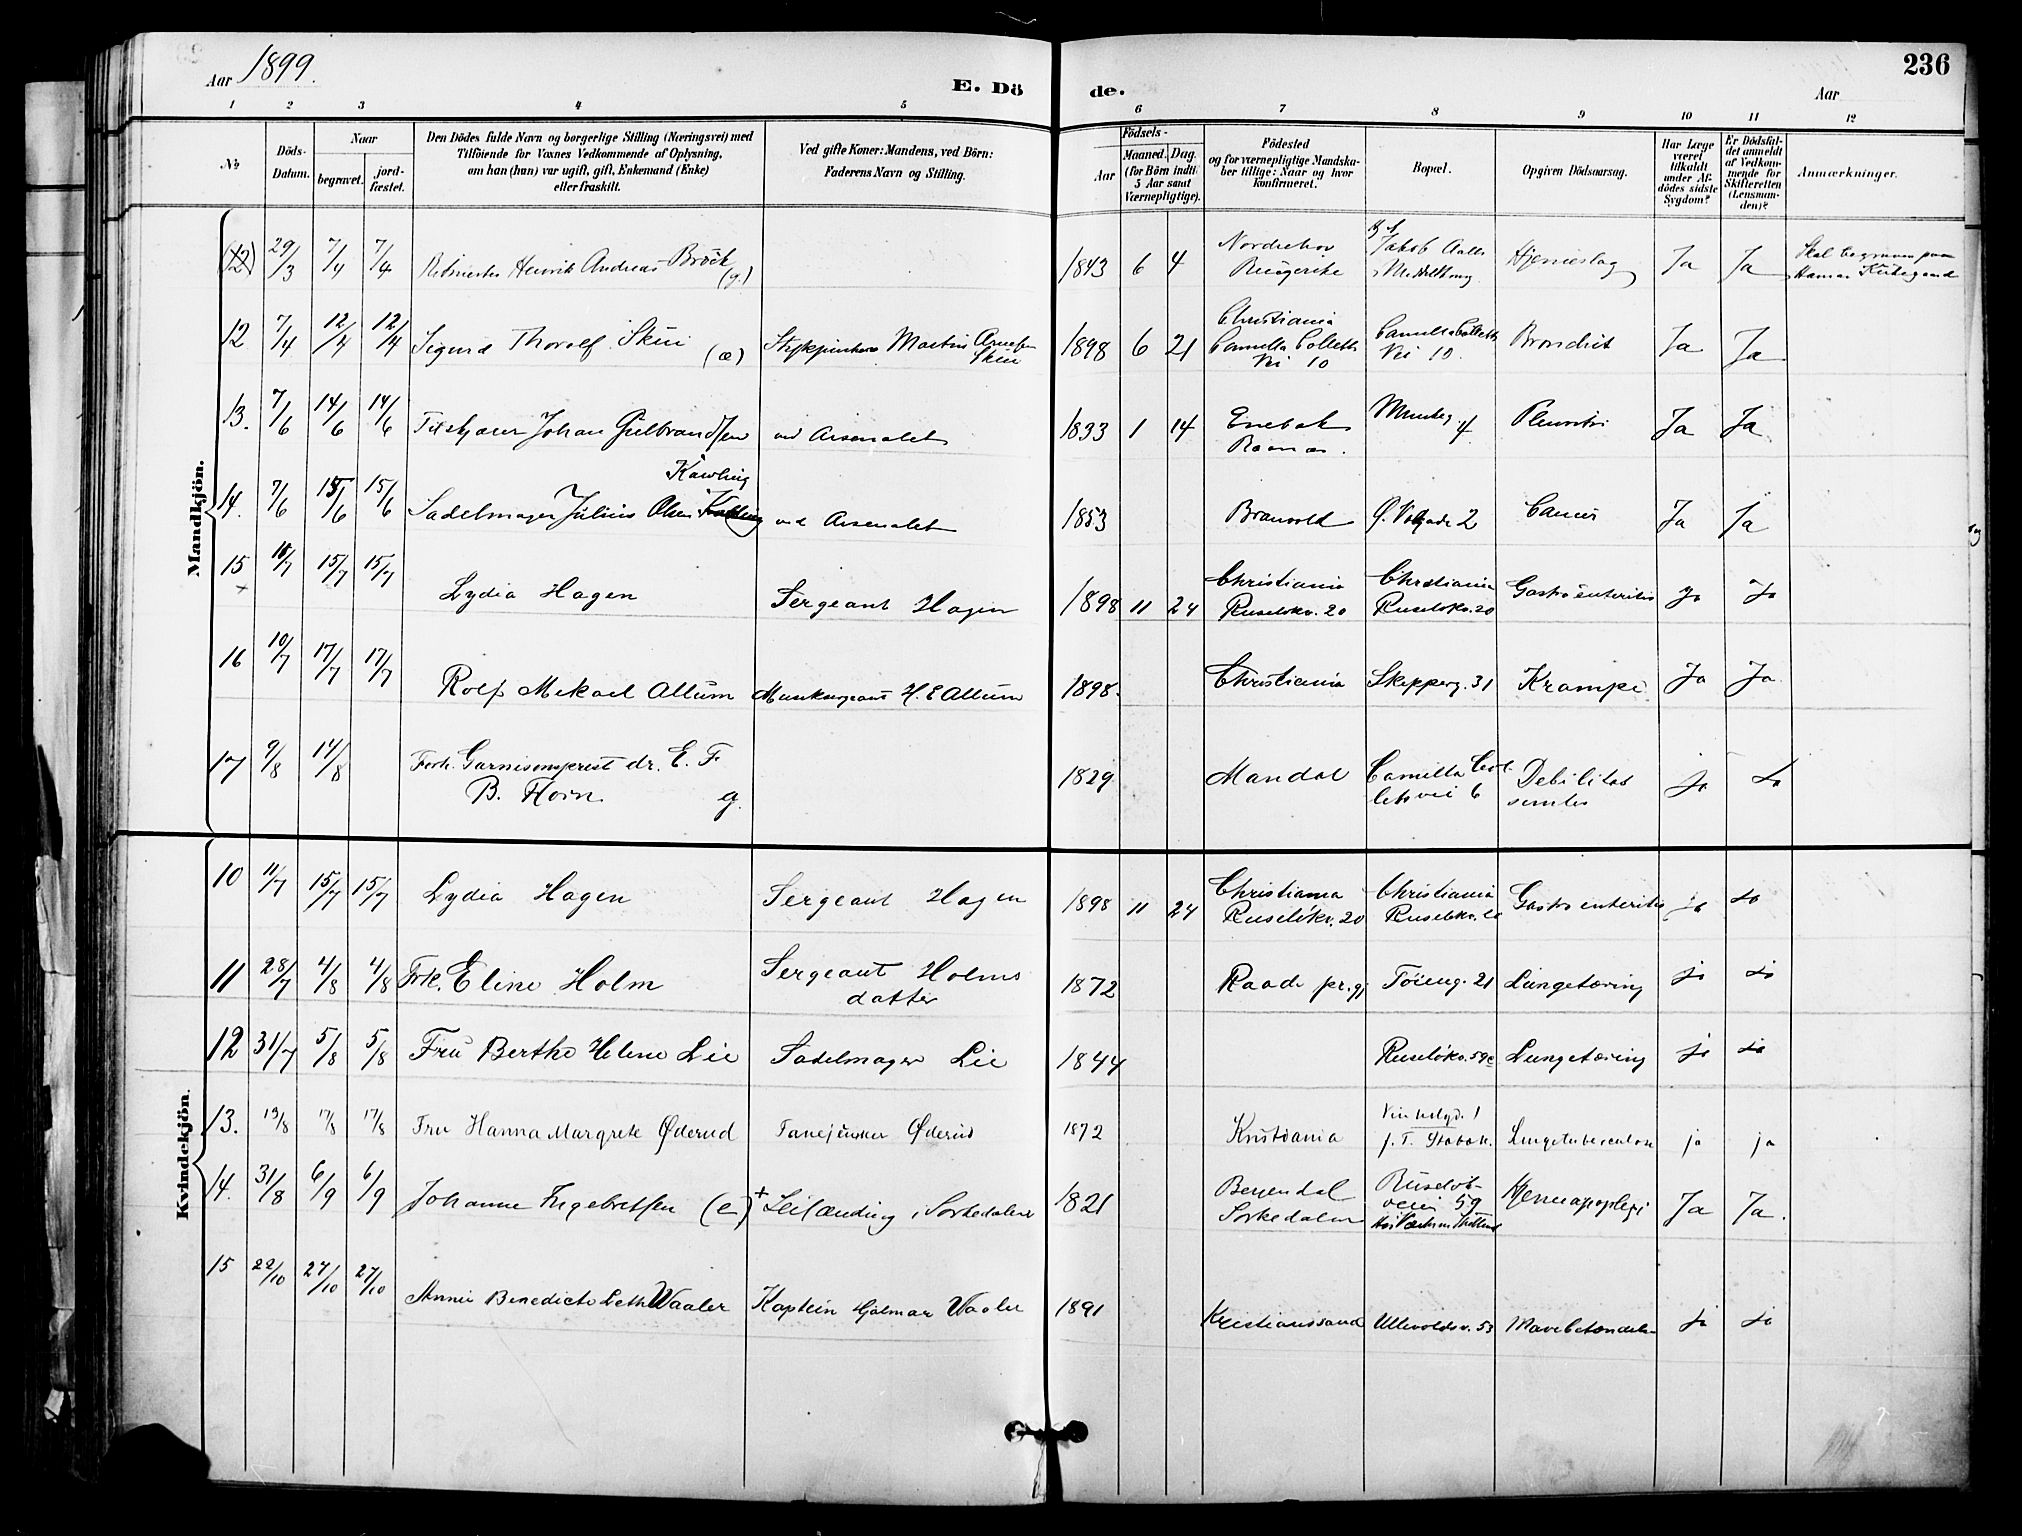 Aar 1899.
E. Dö de.
236
Aar
1 2 3 4 5 6 7 8 9 10 11 12
No.
Döds-Datum.
Naar
begravet.
jord-fæstet.
Den Dödes fulde Navn og borgerlige Stilling (Næringsvei) med
Tilföiende for Voxnes Vedkommende af Oplysning,
om han (hun) var ugift, gift, Enkemand (Enke)
eller fraskilt.
Ved gifte Koner: Mandens, ved Börn:
Faderens Navn og Stilling.
Födsels-
Aar
Maaned. Dag.
(for Börn indtil
5 Aar samt
Værnepligtige).
Födested
og for værnepligtige Mandska-
ber tillige: Naar og hvor
konfirmeret.
Bopæl.
Opgiven Dödsaarsag.
Har Læge
været
tilkaldt
under Af-
dödes sidste
Sygdom?
Er Dödsfal-
det anmeldt
af Vedkom-
mende for
Skifteretten
(Lensman-
den)?
Anmærkninger.
Mandkjön.
(12) 29/3 7/4 7/4 Ritmester Henrik Andreas Bröch (g.) 1843 6 4 Nordrehov Ringerike Jakob Aalls Hjerneslag Ja Ja Skal begraves paa Hamar Kirkegaard
12 7/4 12/4 12/4 Sigurd Thorolf Skui (æ) Martin Arnesen Skui 1898 6 21 Christiania Camilla Colletts Vei 10 Camilla Colletts Vei 10. Bronchit Ja Ja
13. 7/6 14/6 14/6 Johan Gulbrandsen ved Arsenalet 1833 1 14 Enebak Munkeg. 4 Pleuritis Ja Ja
14. 7/6 15/6 15/6 Sadelmager Julius Olsen Kavling ved Arsenalet 1853 Branvold 2 Cancer Ja Ja
15 + 10/7 15/7 15/7 Lydia Hagen Sergeant Hagen 1898 11 24 Christiania Ruseløkv. 20 Christiania Ruseløkv. 20 Gastroenteritis Ja Ja
16 10/7 17/7 17/7 Rolf Mikael Allum H. E Allum 1898. Christiania Skipperg. 31 Krampe Ja Ja
17 9/8 14/8 Forh. Garnisonsprest dr. E. F. B. Horn g. 1829 Mandal Camilla Col-letsvei 6 Debilitas senilis ja ja
Kvindekjön.
10 11/7 15/7 15/7 Lydia Hagen Sergeant Hagen 1898 11 24 Christiania Ruseløkv. 20 Christiania Ruseløkv. 20 Gastroenteritis ja ja
11 28/7 4/8 4/8 Frk. Eline Holm Sergeant Holms datter 1872 Raade pr.gj Töieng. 21 Lungetæring ja ja
12 31/7 5/8 5/8 Fru Berthe Helene Lie Sadelmager Lie 1844 Ruseløkv. 59c Lungetæring ja ja
13. 13/8 17/8 17/8 Fru Hanna Margrete Øderud Øderud 1872 Kristiania Stabæk. Lungetuberculose ja ja
14. 31/8 6/9 6/9 Johanne Ingebretsen (e) + Leilænding i Sørkedalen 1821 Sørkedalen Ruseløk-veien 59 Hjerneapoplexi Ja Ja.
15 22/10 27/10 27/10 Annie Benedicte Leth Waaler Kaptein Hjalmar Waaler 1891 Kristianssand Ullevoldsv. 53 Mavebetændelse ja ja